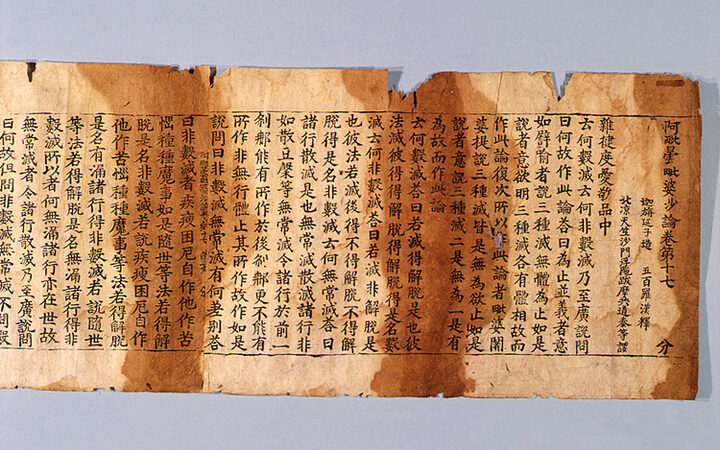 阿毗曇毗婆沙論卷第十七 分
迦旃延子造 五百羅漢釋
北涼天竺沙門浮陀跋摩共道泰等譯
雜揵度愛敬品中
云何數滅云何非數滅乃至廣說問
曰何故作此論答曰為止並義者意
如譬喻者說三種滅無體為止如是
說者意欲明三種滅各有體相故而
作此論復次所以作此論者毗婆闍
婆提說三種滅皆是無為欲止如是
說者意說三種滅二是無為一是有
為故而作此論
云何數滅答曰若滅得解脫是也彼
法滅彼得得解脫得解脫得是名數
滅云何非數滅答曰若滅非解脫是
也彼法若滅後得不得解脫不得解
脫得是名非數滅云何無常滅答曰
諸行散滅是也無常滅散滅諸行
如散豆聚等無常滅令諸行於前一
剎那能有所作於後剎那更不能有
所作非無行體止其所作故作如是
說問曰非數滅無常滅有何差別答
曰非數滅者疾疫困厄自作他作苦
惱種種魔事如是隨世等法若得解
脫是名非數滅若說疾疫困厄自作
他作苦惱種種魔事等法若得解脫
是名有漏諸行得非數滅者說隨世
等法若得解脫是名無漏諸行得非
數滅所以者何無漏諸行亦在世故
無常滅者令諸行散滅乃至廣說問
曰何故但問非數滅無常滅不問數